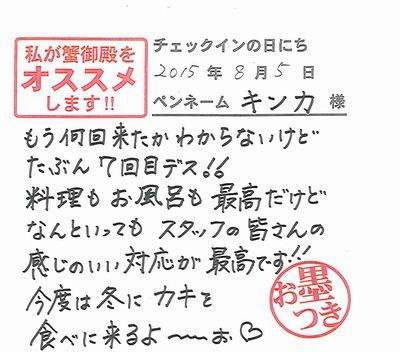 私が蟹御殿を
オススメ
します!!
チェックインの日にち
2015年8月5日
ペンネーム キンカ 様
もう何回来たかわからないけど
たぶん 7回目デス!!
料理も お風呂も 最高だけど
なんといっても スタッフの皆さんの
感じのいい 対応が 最高です!!
今度は冬に カキを
食べに来るよ〜〜お♡
お墨つき